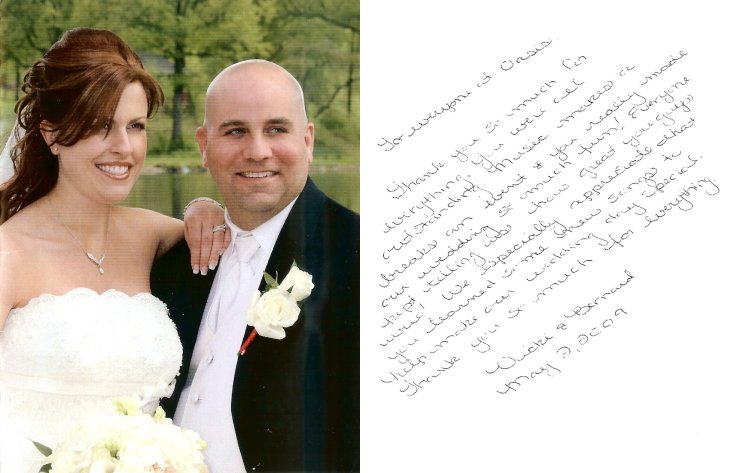 To everyone at Oasis.
Thank you so much for
everything. You were all
outstanding. Music makes or
breaks an event & you really made
our wedding so much fun! Everyone
kept telling us how great you guys
were! We especially appreciate that
you learned some new songs to
help make our wedding day special.
Thank you so much for everything.
Vicki & Bernard
May 2, 2009